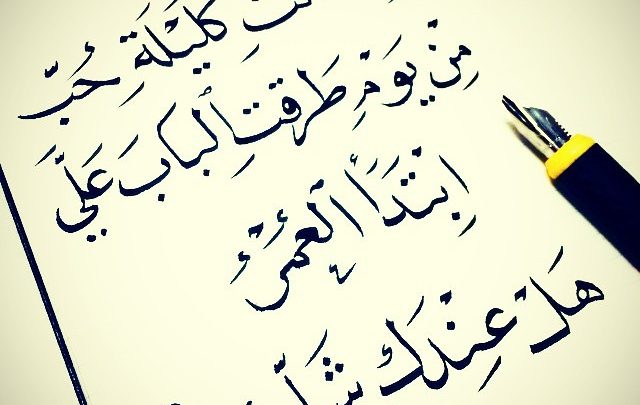 كليلة حُبّ
مِنْ يَوْمِ طَرقتِ البابَ عَلَيَّ
اِبْتَدَأَ العُمْرُ
هَلْ عِنْدكِ